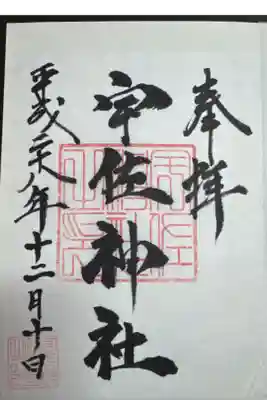 奉拝
宇佐神社
平成二十八年十二月十日